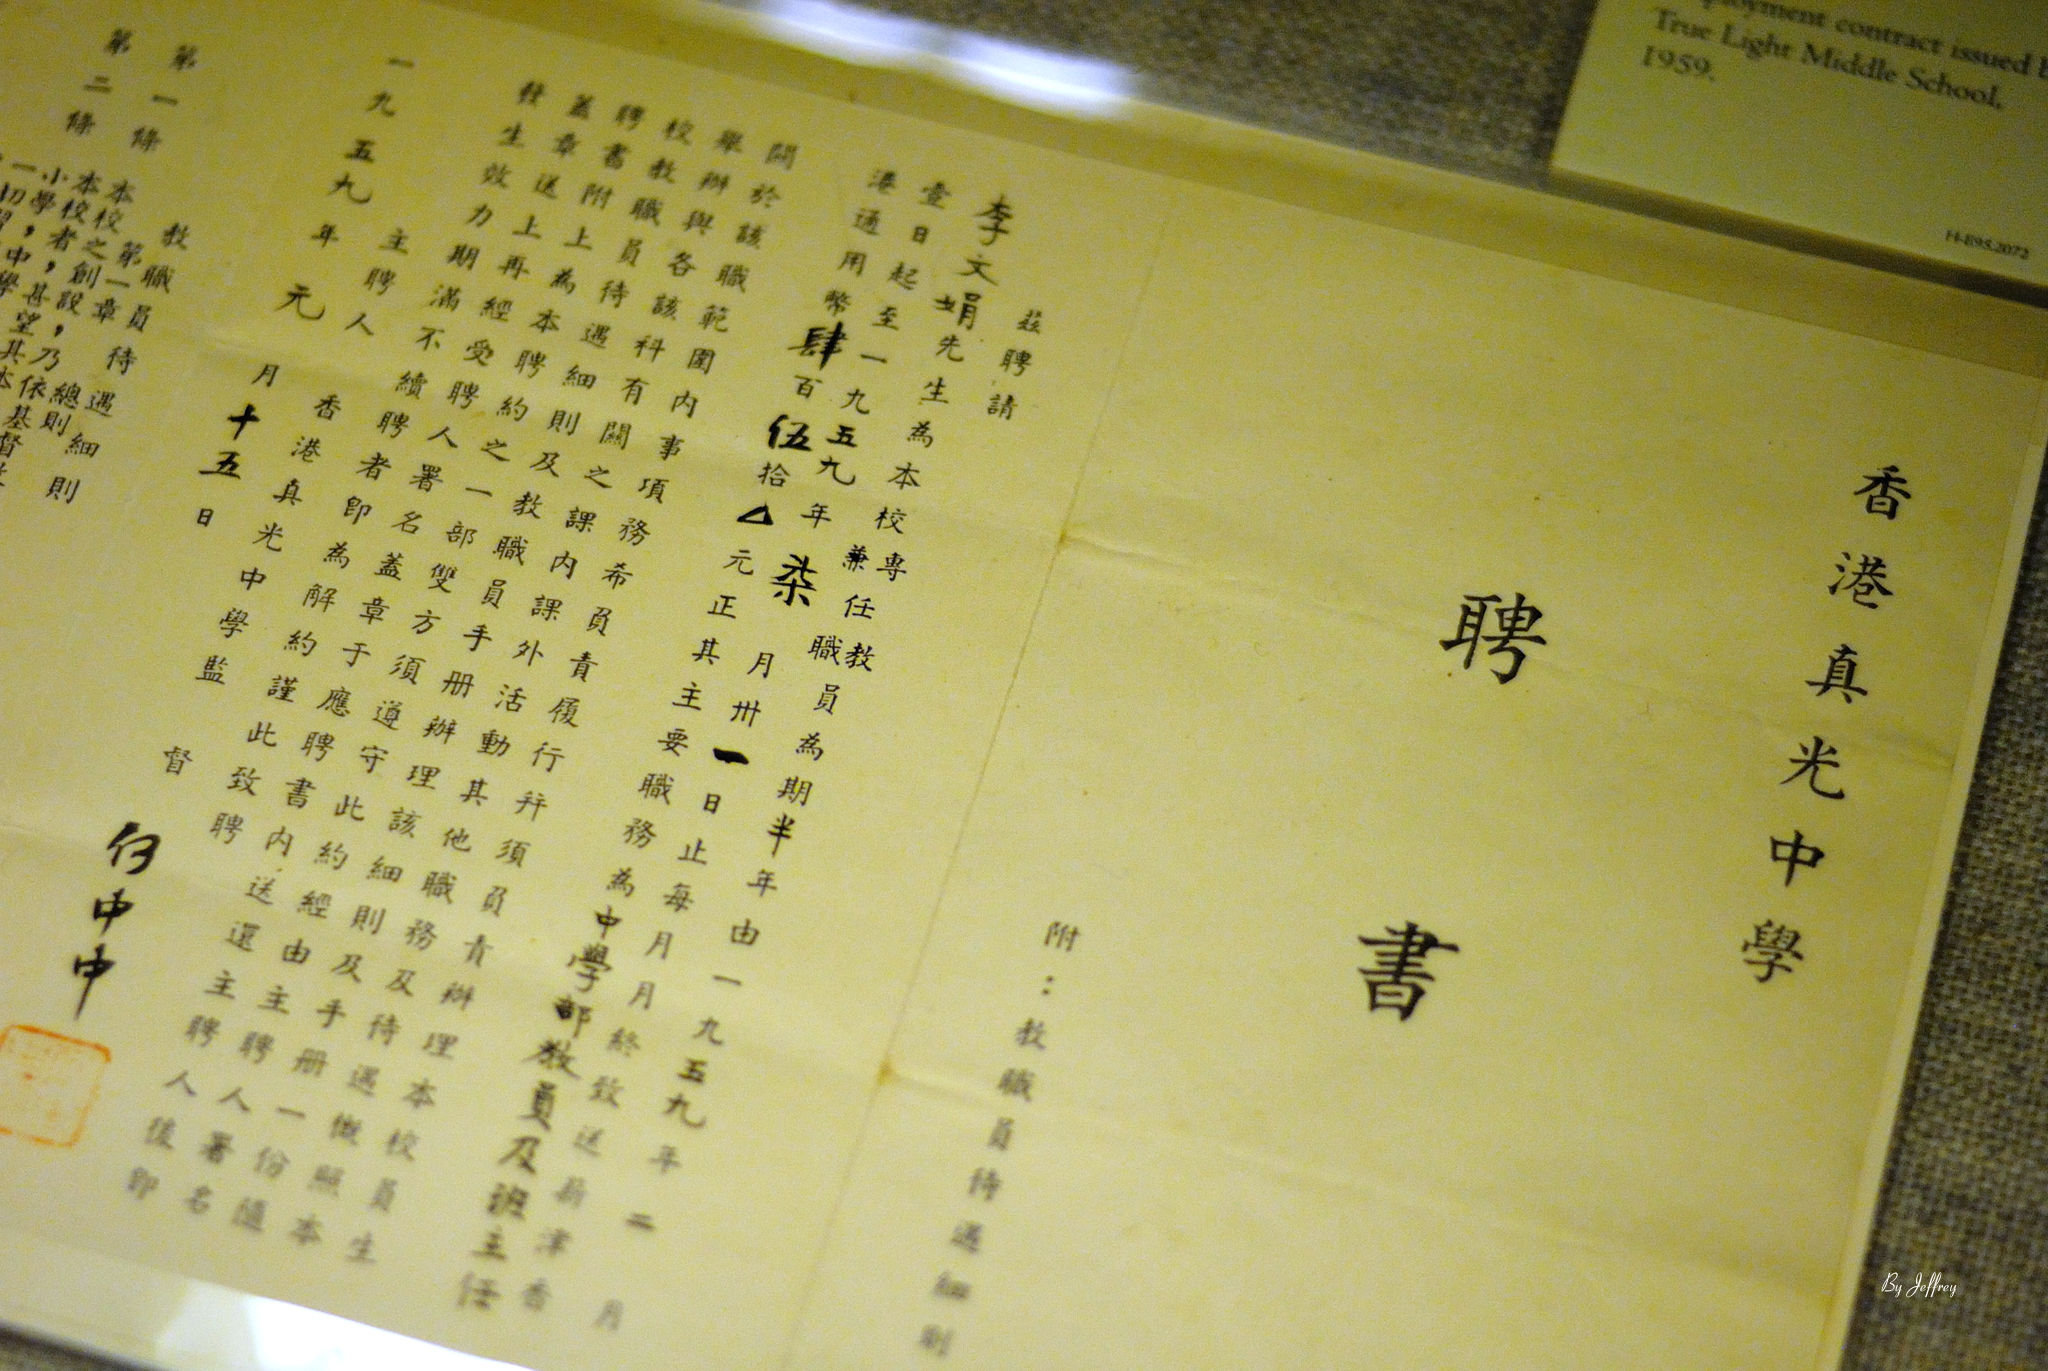 ployment contract issued b
True Light Middle School,
1959.
H-E95.2072
香港真光中學
聘書
附：教職員待遇細則
茲聘請
李文娟先生為本校專兼任教職員為期半年由一九五九年二月
壹日起至一九五九年柒月卅一日止每月月終致送薪津香
港通用幣肆百伍拾△元正其主要職務為中學部教員及班主任
關於該職範圍內事項務希負責履行幷須負責辦理本校員生
舉辦與各該科有關之課內課外活動其他職務及待遇概照本
校教職員待遇細則及教職員手册辦理該細則及手册一份隨
聘書附上為本聘約之一部雙方須遵守此約經由主聘人署名
蓋章送上再經受聘人署名蓋章于應聘書內送還主聘人後即
發生效力期滿不續聘者即為解約謹此致聘
主聘人 香港真光中學監督 何中中
一九五九年元月十五日
教職員待遇細則
第一章 總則
第一條 本校之創設，乃依基督
第二條
By Jeffrey